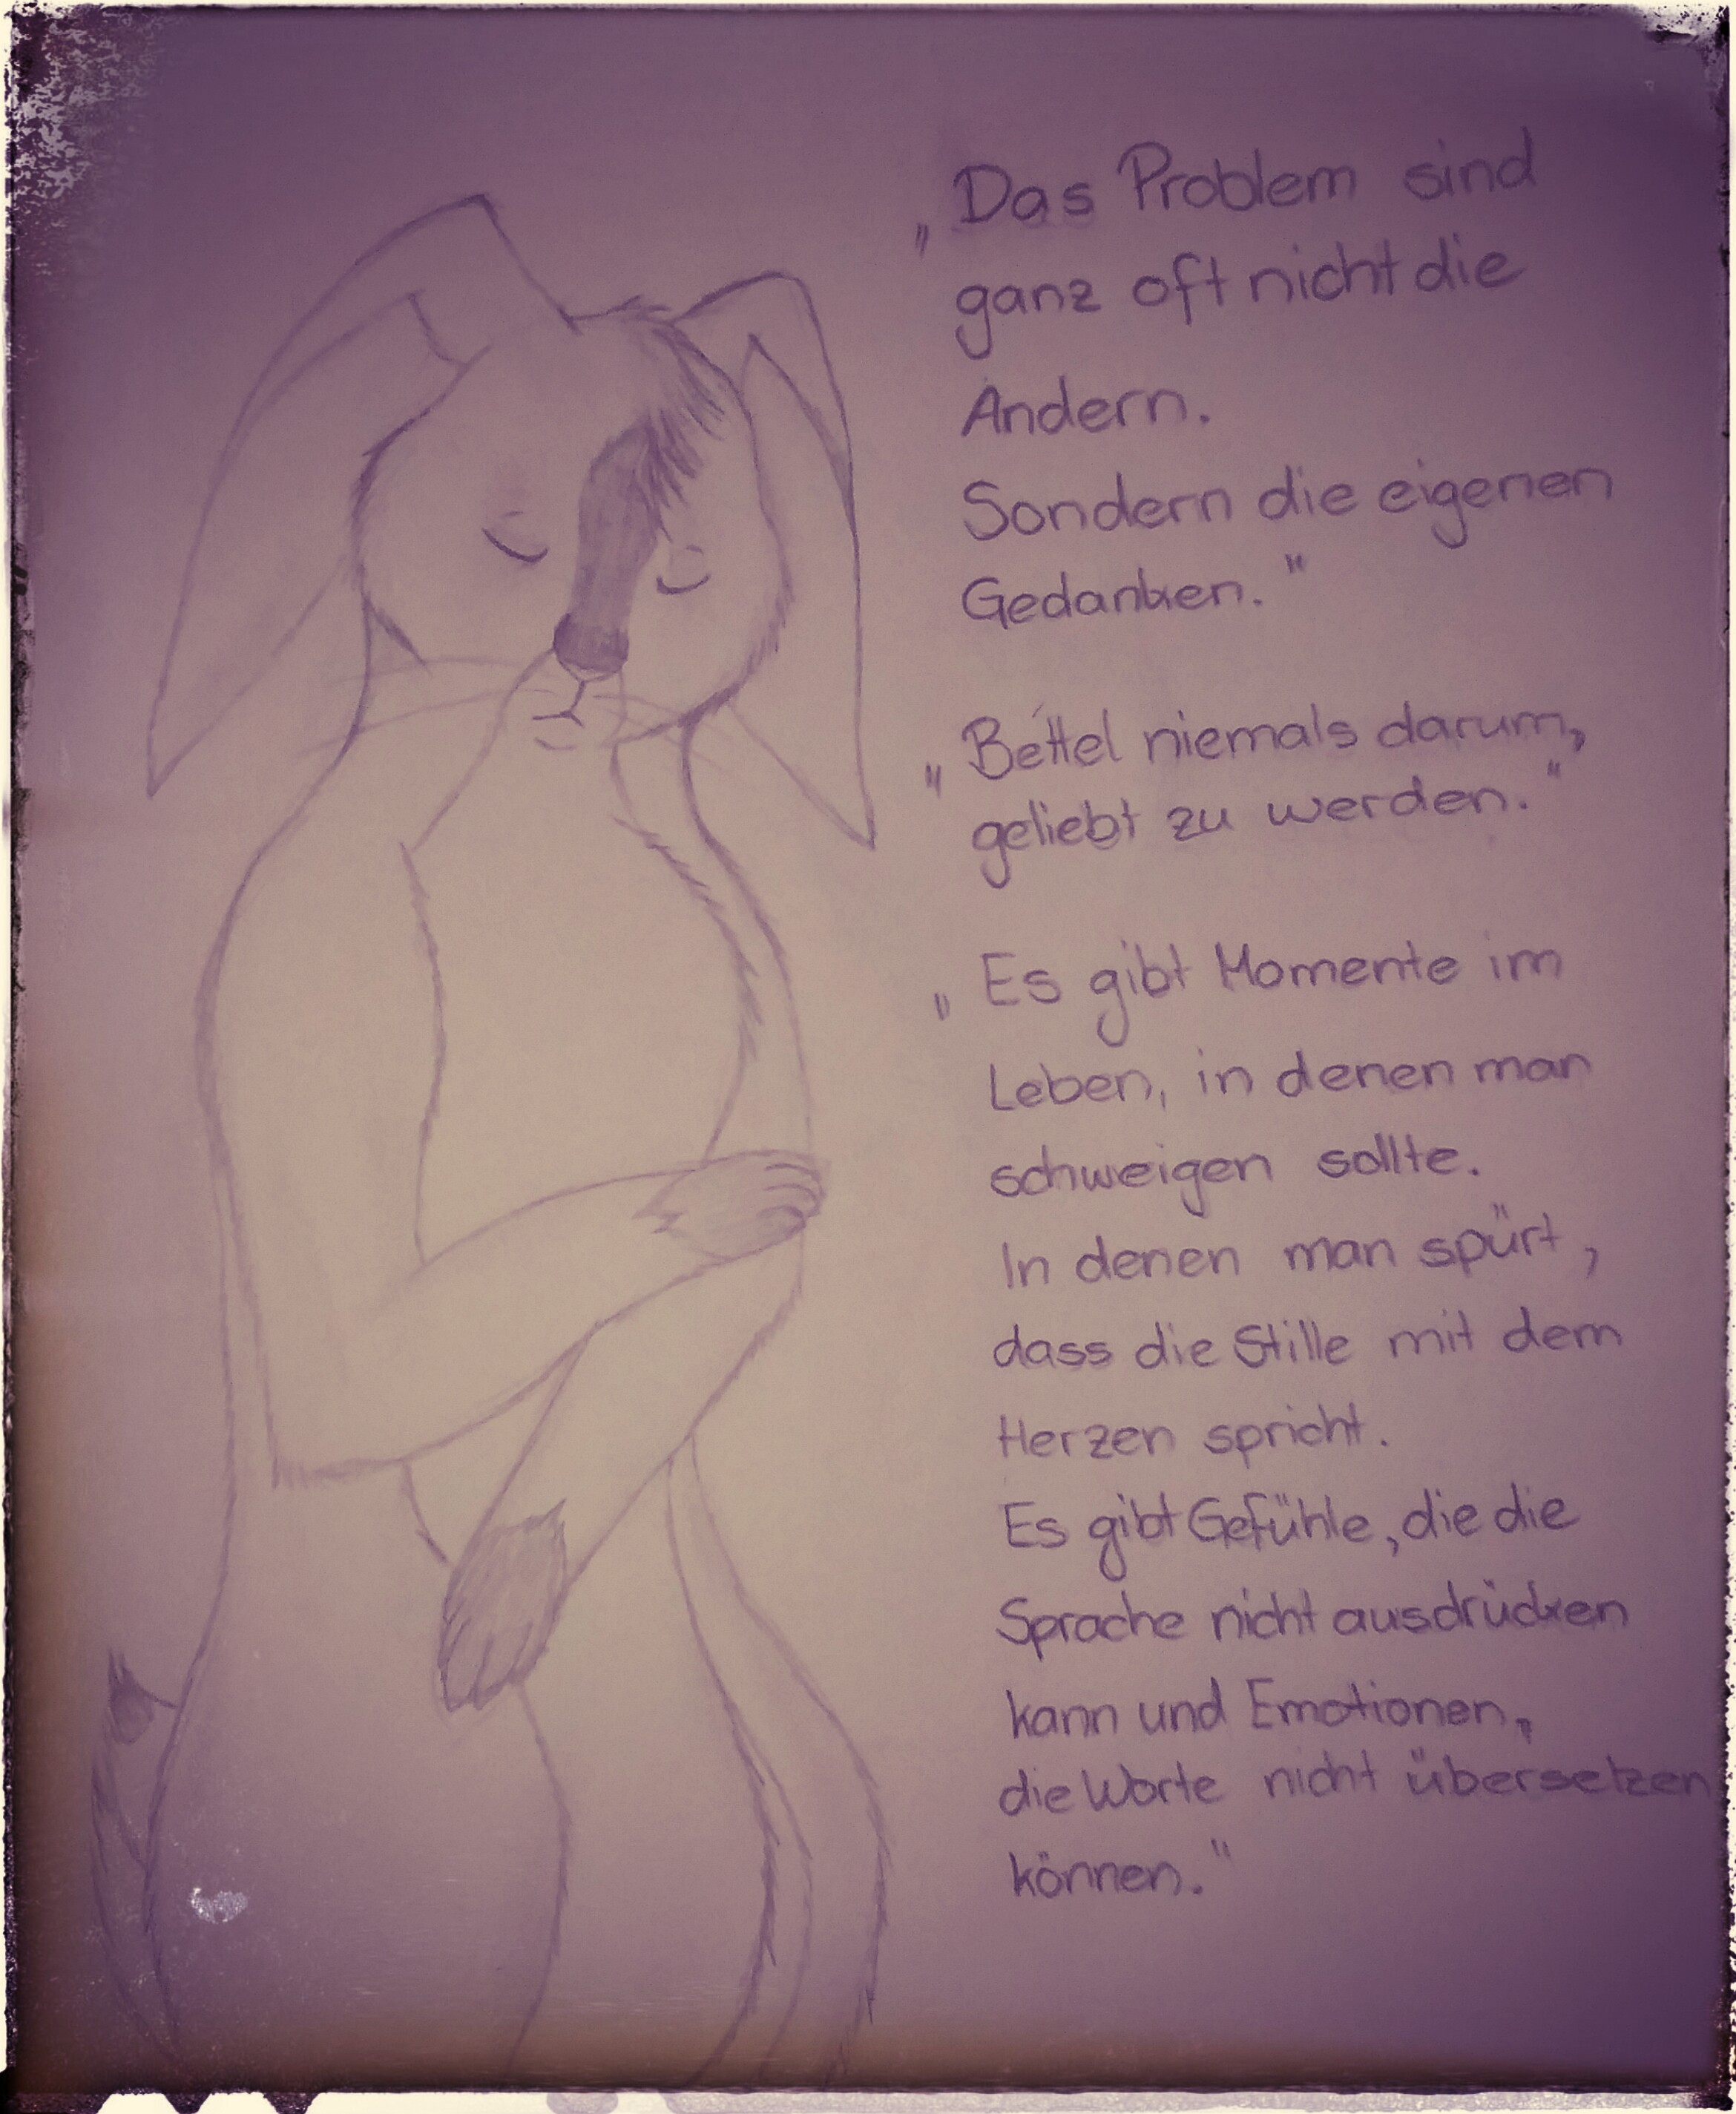 „Das Problem sind
ganz oft nicht die
Andern.
Sondern die eigenen
Gedanken."
„Bettel niemals darum,
geliebt zu werden."
„Es gibt Momente im
Leben, in denen man
schweigen sollte.
In denen man spürt,
dass die Stille mit dem
Herzen spricht.
Es gibt Gefühle, die die
Sprache nicht ausdrücken
kann und Emotionen,
die Worte nicht übersetzen
können."